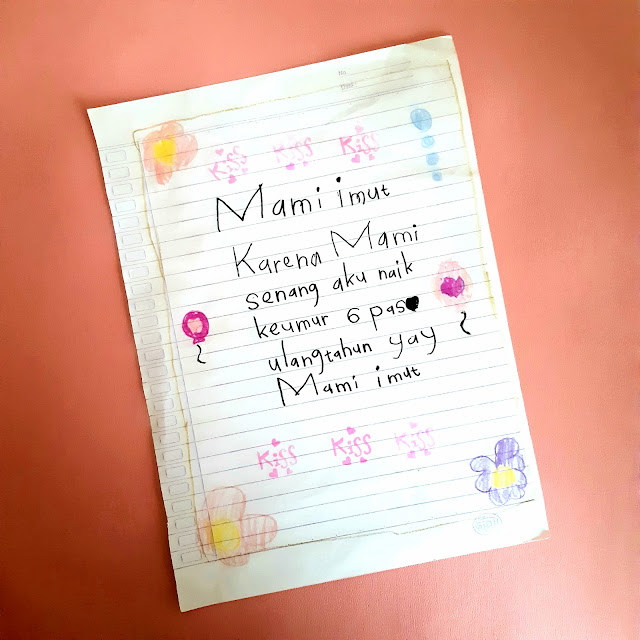 No
Date
Kiss Kiss Kiss
Mami imut
Karena Mami
senang aku naik
keumur 6 pas
ulangtahun yay
Mami imut
Kiss Kiss Kiss